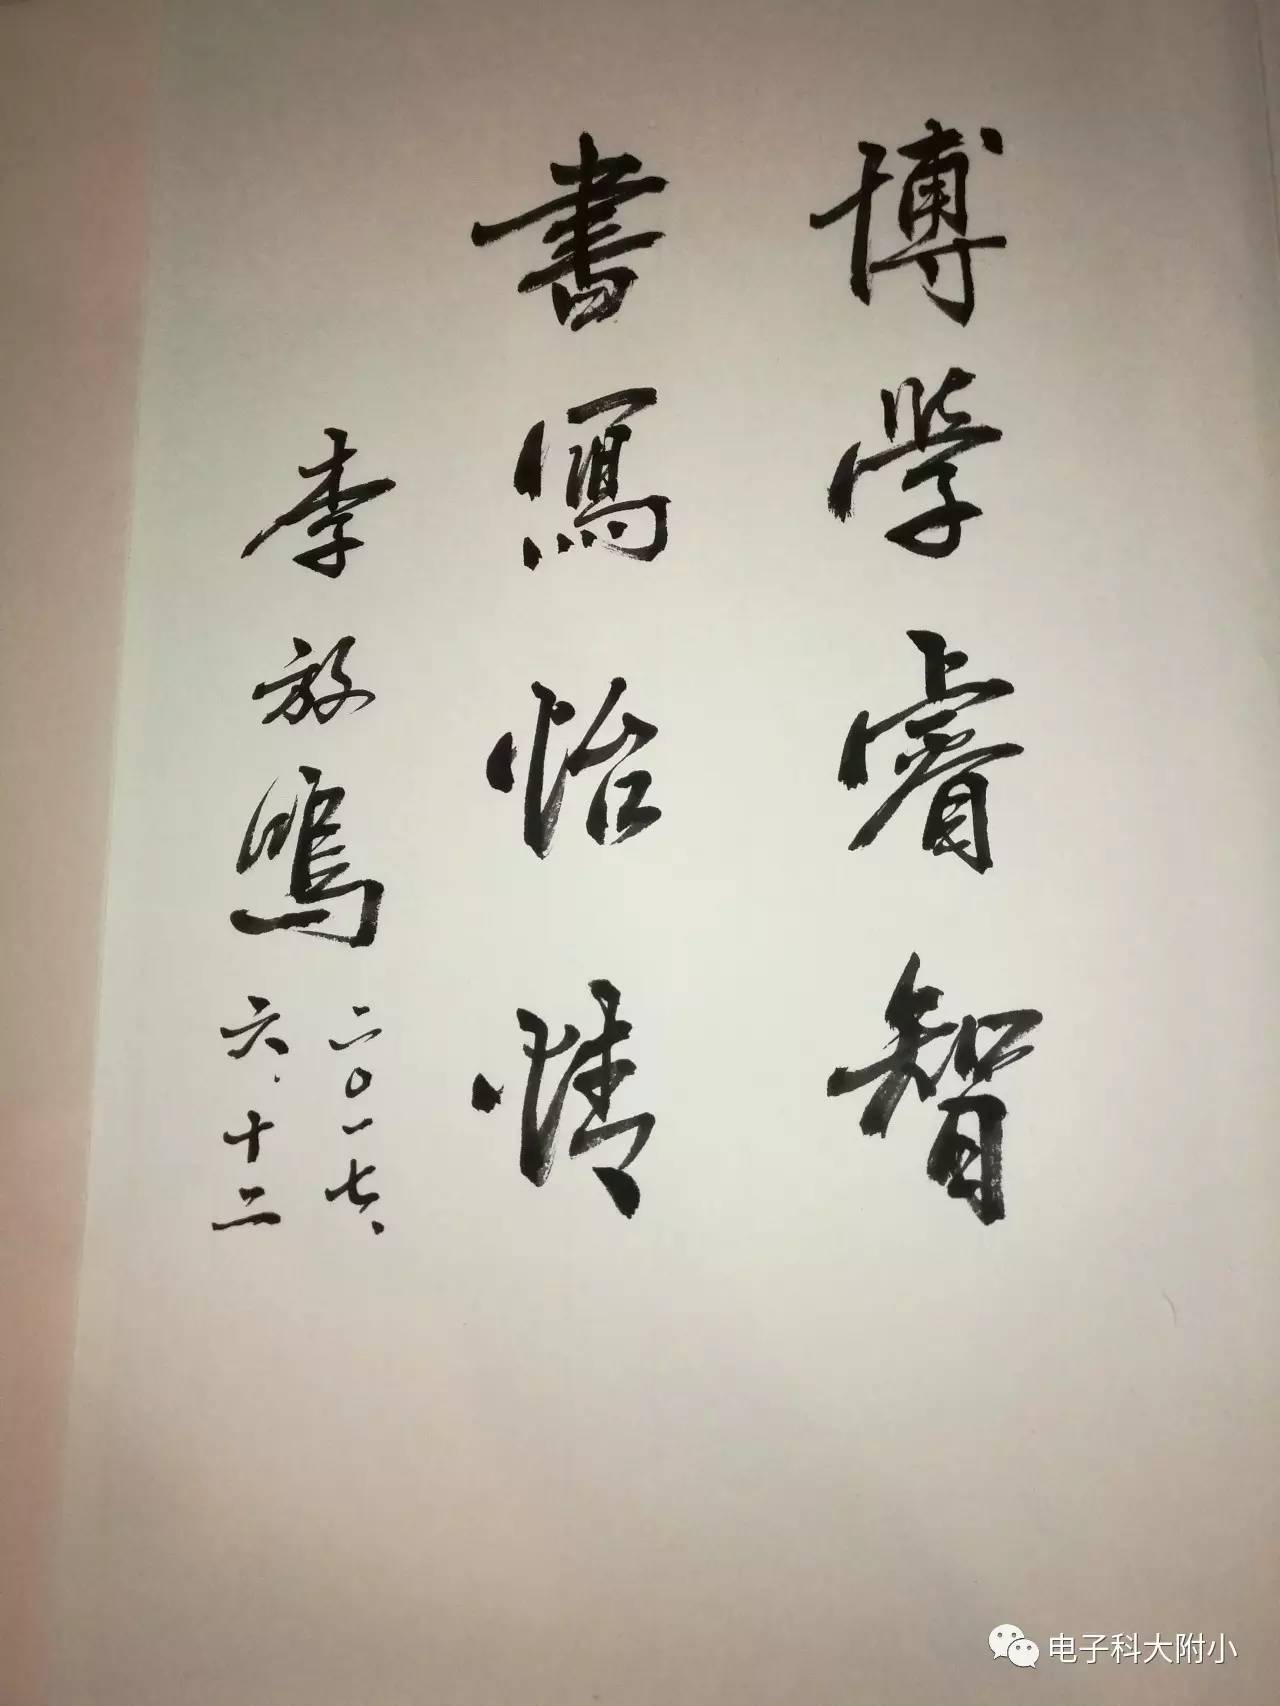 博學睿智
書寫怡情
李放鳴
二〇一七、
六.十二
电子科大附小